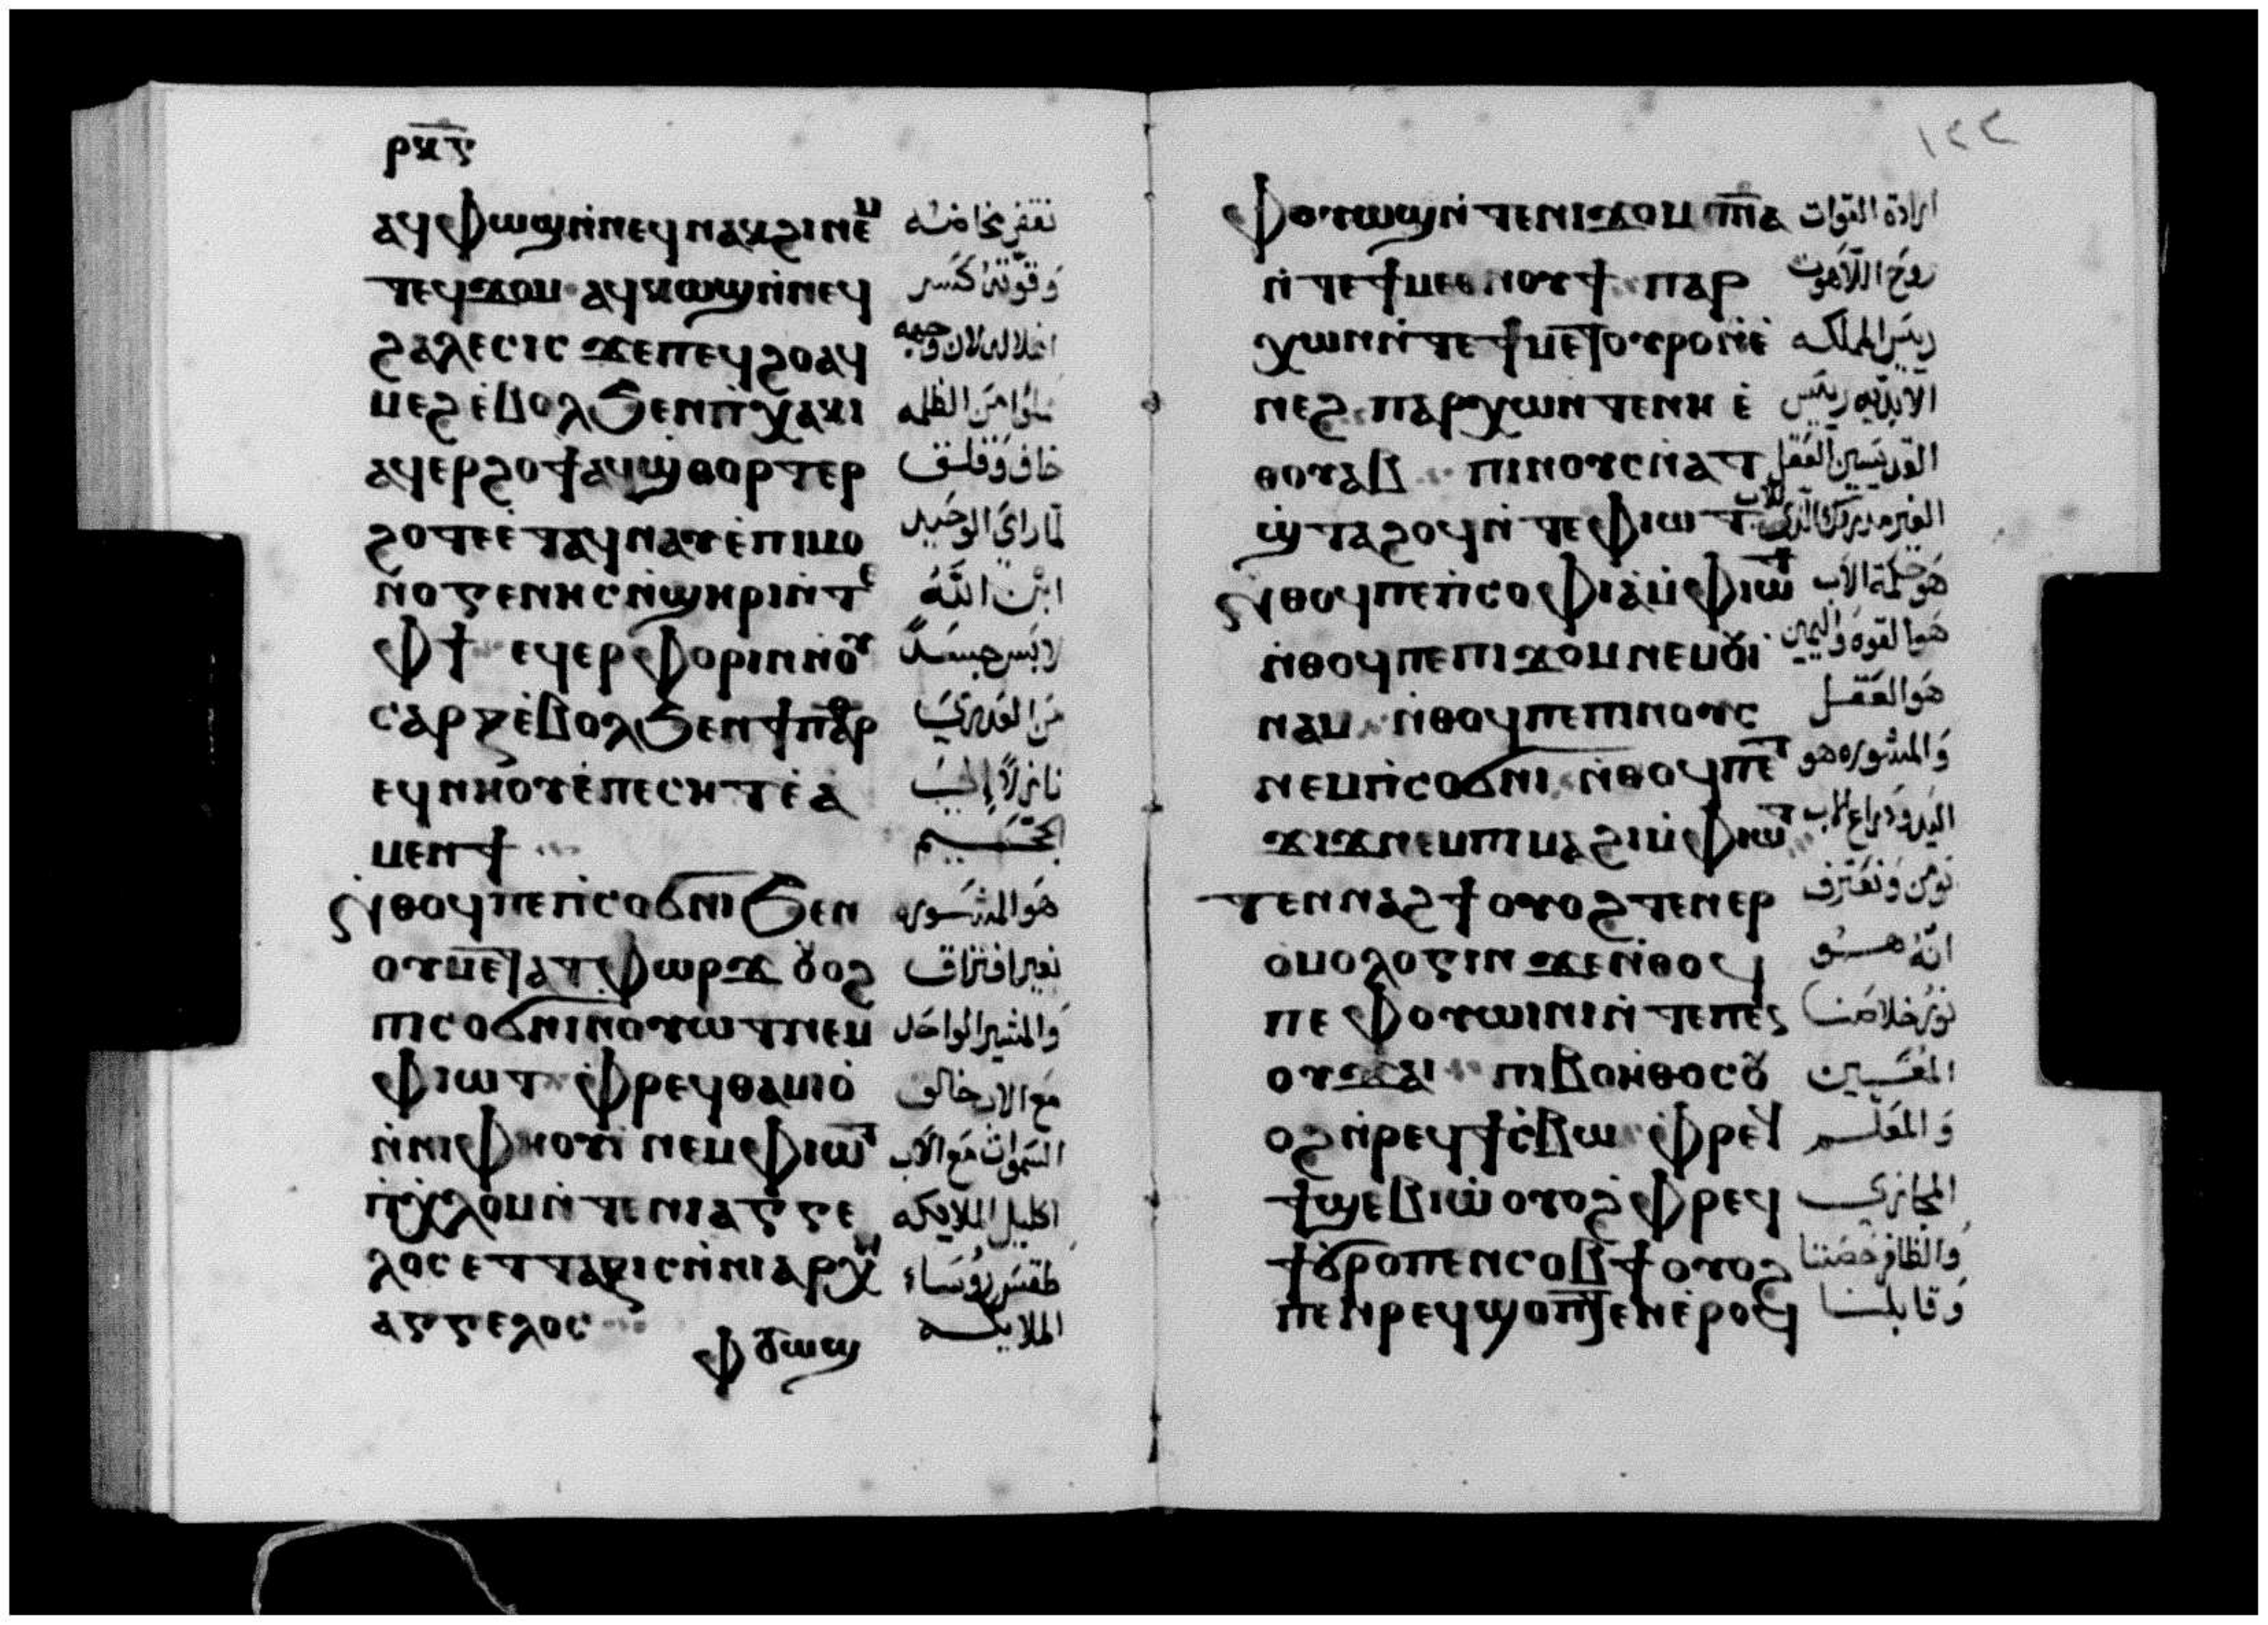 ⲣⲕ̅ⲋ̅
ⲁϥⲫⲱϣⲛ̀ⲛⲉϥⲛⲁⲕϩⲓⲛⲉⲙ
ⲧⲉϥϫⲟⲙ ⲁϥⲕⲱϣⲛ̀ⲛⲉϥ وقوته كسر
ϩⲁⲗⲉⲥⲓⲥ ϫⲉⲡⲉϥϩⲟⲁϥ
ⲙⲉϩⲉ̀ⲃⲟⲗϧⲉⲛⲡ̀ⲭⲁⲕⲓ من الظلمه
ⲁϥⲉⲣϩⲟϯⲁϥϣⲑⲟⲣⲧⲉⲣ خاف وقلق
ϩⲟⲧⲉⲉ̀ⲧⲁϥⲛⲁⲩⲉ̀ⲡⲓⲙⲟ لما راى الوحيد
ⲛ̀ⲟⲅⲉⲛⲏⲥⲛ̀ϣⲏⲣⲓⲛ̀ⲧⲉ ابن الله
ⲫϯ ⲉϥⲉⲣⲫⲟⲣⲓⲛⲛ̀ⲟⲩ لابس جسدا
ⲥⲁⲣⲝⲉ̀ⲃⲟⲗϧⲉⲛϯⲡⲁⲣ من العدرى
ⲉϥⲛⲏⲟⲩⲉ̀ⲡⲉⲥⲏⲧⲉ̀ⲁ نازلا الى
ⲙⲉⲛϯ الجحيم
ⲛ̀ⲑⲟϥⲡⲉⲡ̀ⲥⲟϭⲛⲓϧⲉⲛ هو المشوره
ⲟⲩⲙⲉⲧⲁⲧⲫⲱⲣϫ ⲟⲩⲟϩ بغير افتراق
ⲡⲓⲥⲟϭⲛⲓⲛⲟⲩⲱⲧⲛⲉⲙ والمشير الواحد
ⲫⲓⲱⲧ ⲫ̀ⲣⲉϥⲑⲁⲙⲓⲟ̀ مع الاب خالق
ⲛ̀ⲛⲓⲫⲏⲟⲩⲓ̀ ⲛⲉⲙⲫⲓⲱⲧ السموات مع الاب
ⲡ̀ⲭ̀ⲗⲟⲙⲛ̀ⲧⲉⲛⲓⲁⲅⲅⲉ اكليل الملايكه
ⲗⲟⲥ ⲉⲧⲧⲁⲝⲓⲥⲛ̀ⲛⲓⲁⲣⲭⲏ طقس روساء
ⲁⲅⲅⲉⲗⲟⲥ الملايكه
ⲫⲟⲩⲱϣ
١٢٢
ⲫⲟⲩⲱϣⲛ̀ⲧⲉⲛⲓϫⲟⲙ ⲡⲓⲡ̅ⲛ̅ⲁ ارادة القوات
ⲛ̀ⲧⲉϯⲙⲉⲑⲛⲟⲩϯ ⲡⲁⲣ روح اللاهوت
ⲭⲱⲛⲛ̀ⲧⲉϯⲙⲉⲧⲟⲩⲣⲟⲛ̀ⲉ̀ رييس المملكه
ⲛⲉϩ ⲡⲁⲣⲭⲱⲛⲧⲉⲛⲏ ⲉ̀ الابديه رييس
ⲑⲟⲩⲁⲃ ⲡⲓⲛⲟⲩⲥⲛ̀ⲁⲧ القديسين العقل
ϣ̀ⲧⲁϩⲟϥⲛ̀ⲧⲉⲫⲓⲱⲧ
ⲛ̀ⲑⲟϥⲡⲉⲡ̀ⲥⲟⲫⲓⲁⲙ̀ⲫⲓⲱⲧ هو حكمة الاب
ⲛ̀ⲑⲟϥⲡⲉⲡⲓϫⲟⲙⲛⲉⲙⲟⲩⲓ هو القوه واليمين
ⲛⲁⲙ ⲛ̀ⲑⲟϥⲡⲉⲡⲓⲛⲟⲩⲥ هو العقل
ⲛⲉⲙⲡ̀ⲥⲟϭⲛⲓ ⲛ̀ⲑⲟϥⲡⲉⲧ والمشوره هو
ϫⲓϫⲛⲉⲙⲡⲓⲙⲁϩⲓⲙ̀ⲫⲓⲱⲧ اليد ودراع الاب
ⲧⲉⲛⲛⲁϩϯⲟⲩⲟϩⲧⲉⲛⲉⲣ نومن ونعترف
ⲟⲙⲟⲗⲟⲅⲓⲛ ϫⲉⲛ̀ⲑⲟϥ انه هو
ⲡⲉ ⲫⲟⲩⲱⲓⲛⲓⲛ̀ⲧⲉⲡⲉⲛ نور خلاصنا
ⲟⲩϫⲁⲓ ⲡⲓⲃⲟⲏⲑⲟⲥⲟⲩ المعين
ⲟϩⲛ̀ⲣⲉϥϯⲥ̀ⲃⲱ ⲫ̀ⲣⲉϥ والمعلم
ϯϣⲉⲃⲓⲱ̀ ⲟⲩⲟϩ ⲫ̀ⲣⲉϥ المجازى
ϯϭⲣⲟⲡⲉⲛⲥⲟⲃϯ ⲟⲩⲟϩ والظافر حصننا
ⲡⲉⲛⲣⲉϥϣⲟⲡⲧⲉⲛⲉ̀ⲣⲟϥ وقابلنا